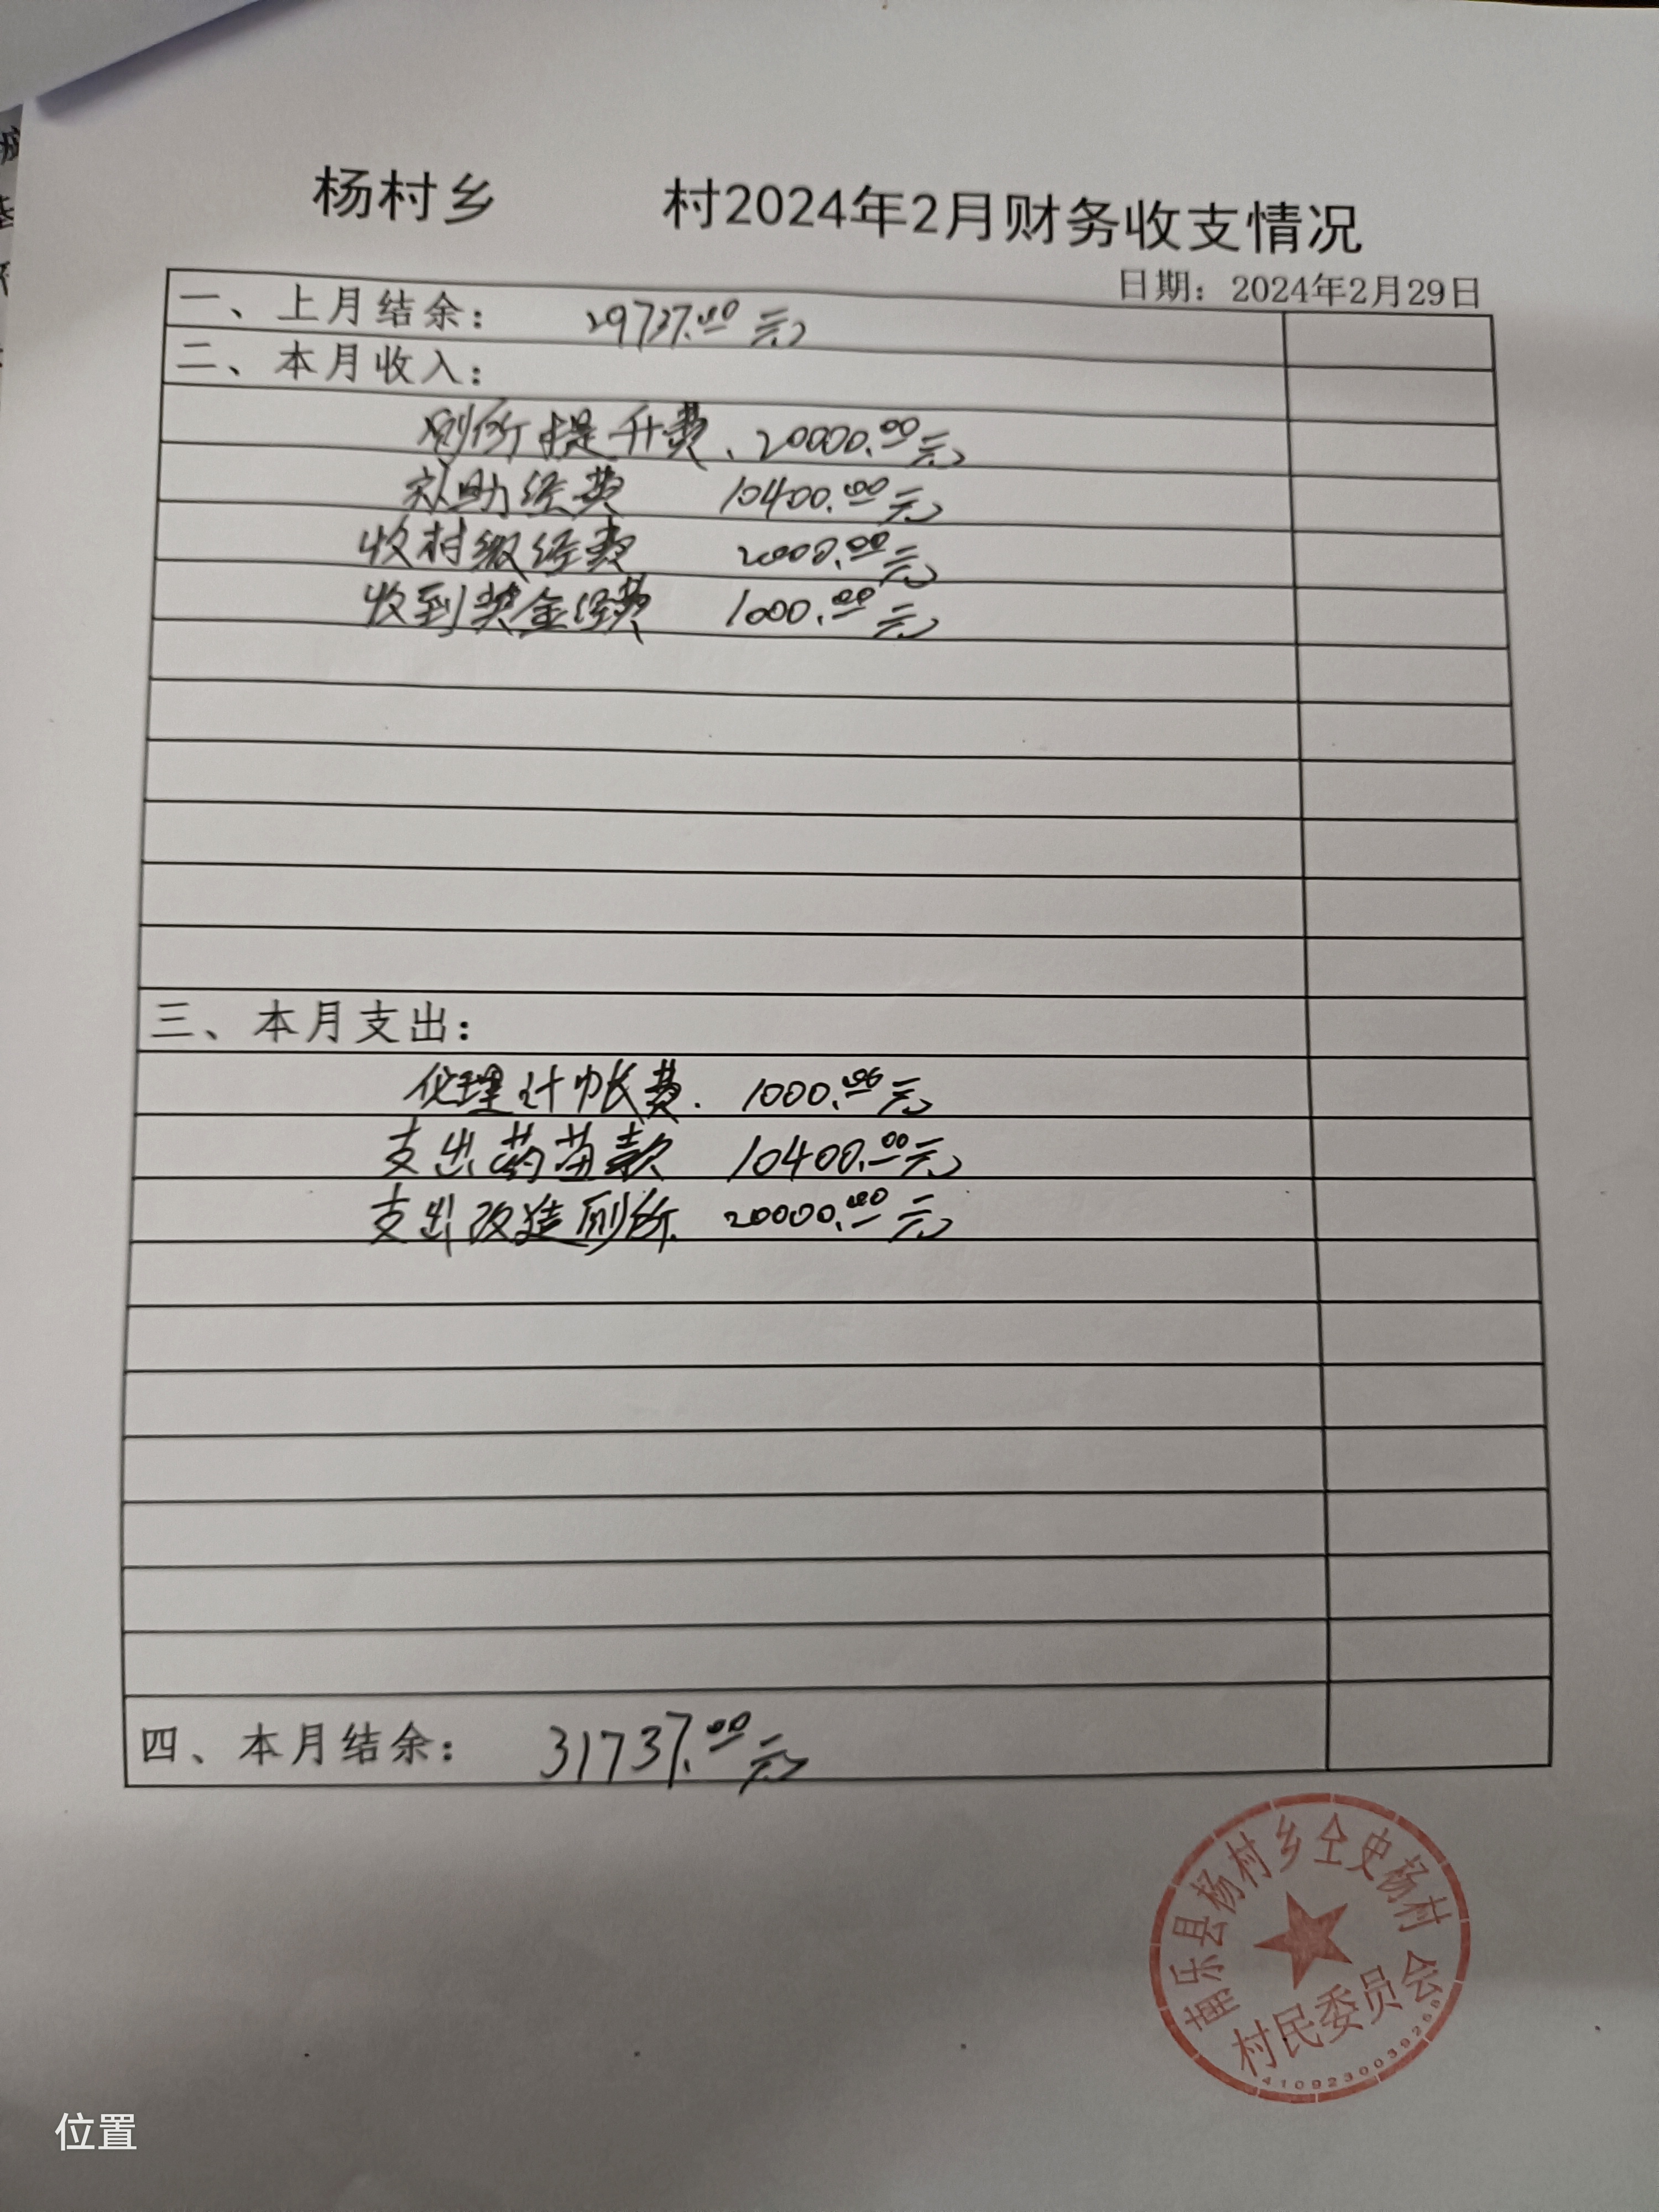 杨村乡 村2024年2月财务收支情况
日期：2024年2月29日
一、上月结余： 29737.00元
二、本月收入：
厕所提升费、20000.00元
效助经费 10400.00元
收村级经费 2000.00元
收到奖金经费 1000.00元
三、本月支出：
代理计帐费. 1000.00元
支出药苗款 10400.00元
支出改造厕所. 20000.00元
四、本月结余： 31737.00元
南乐县杨村乡仝史杨村
村民委员会
位置